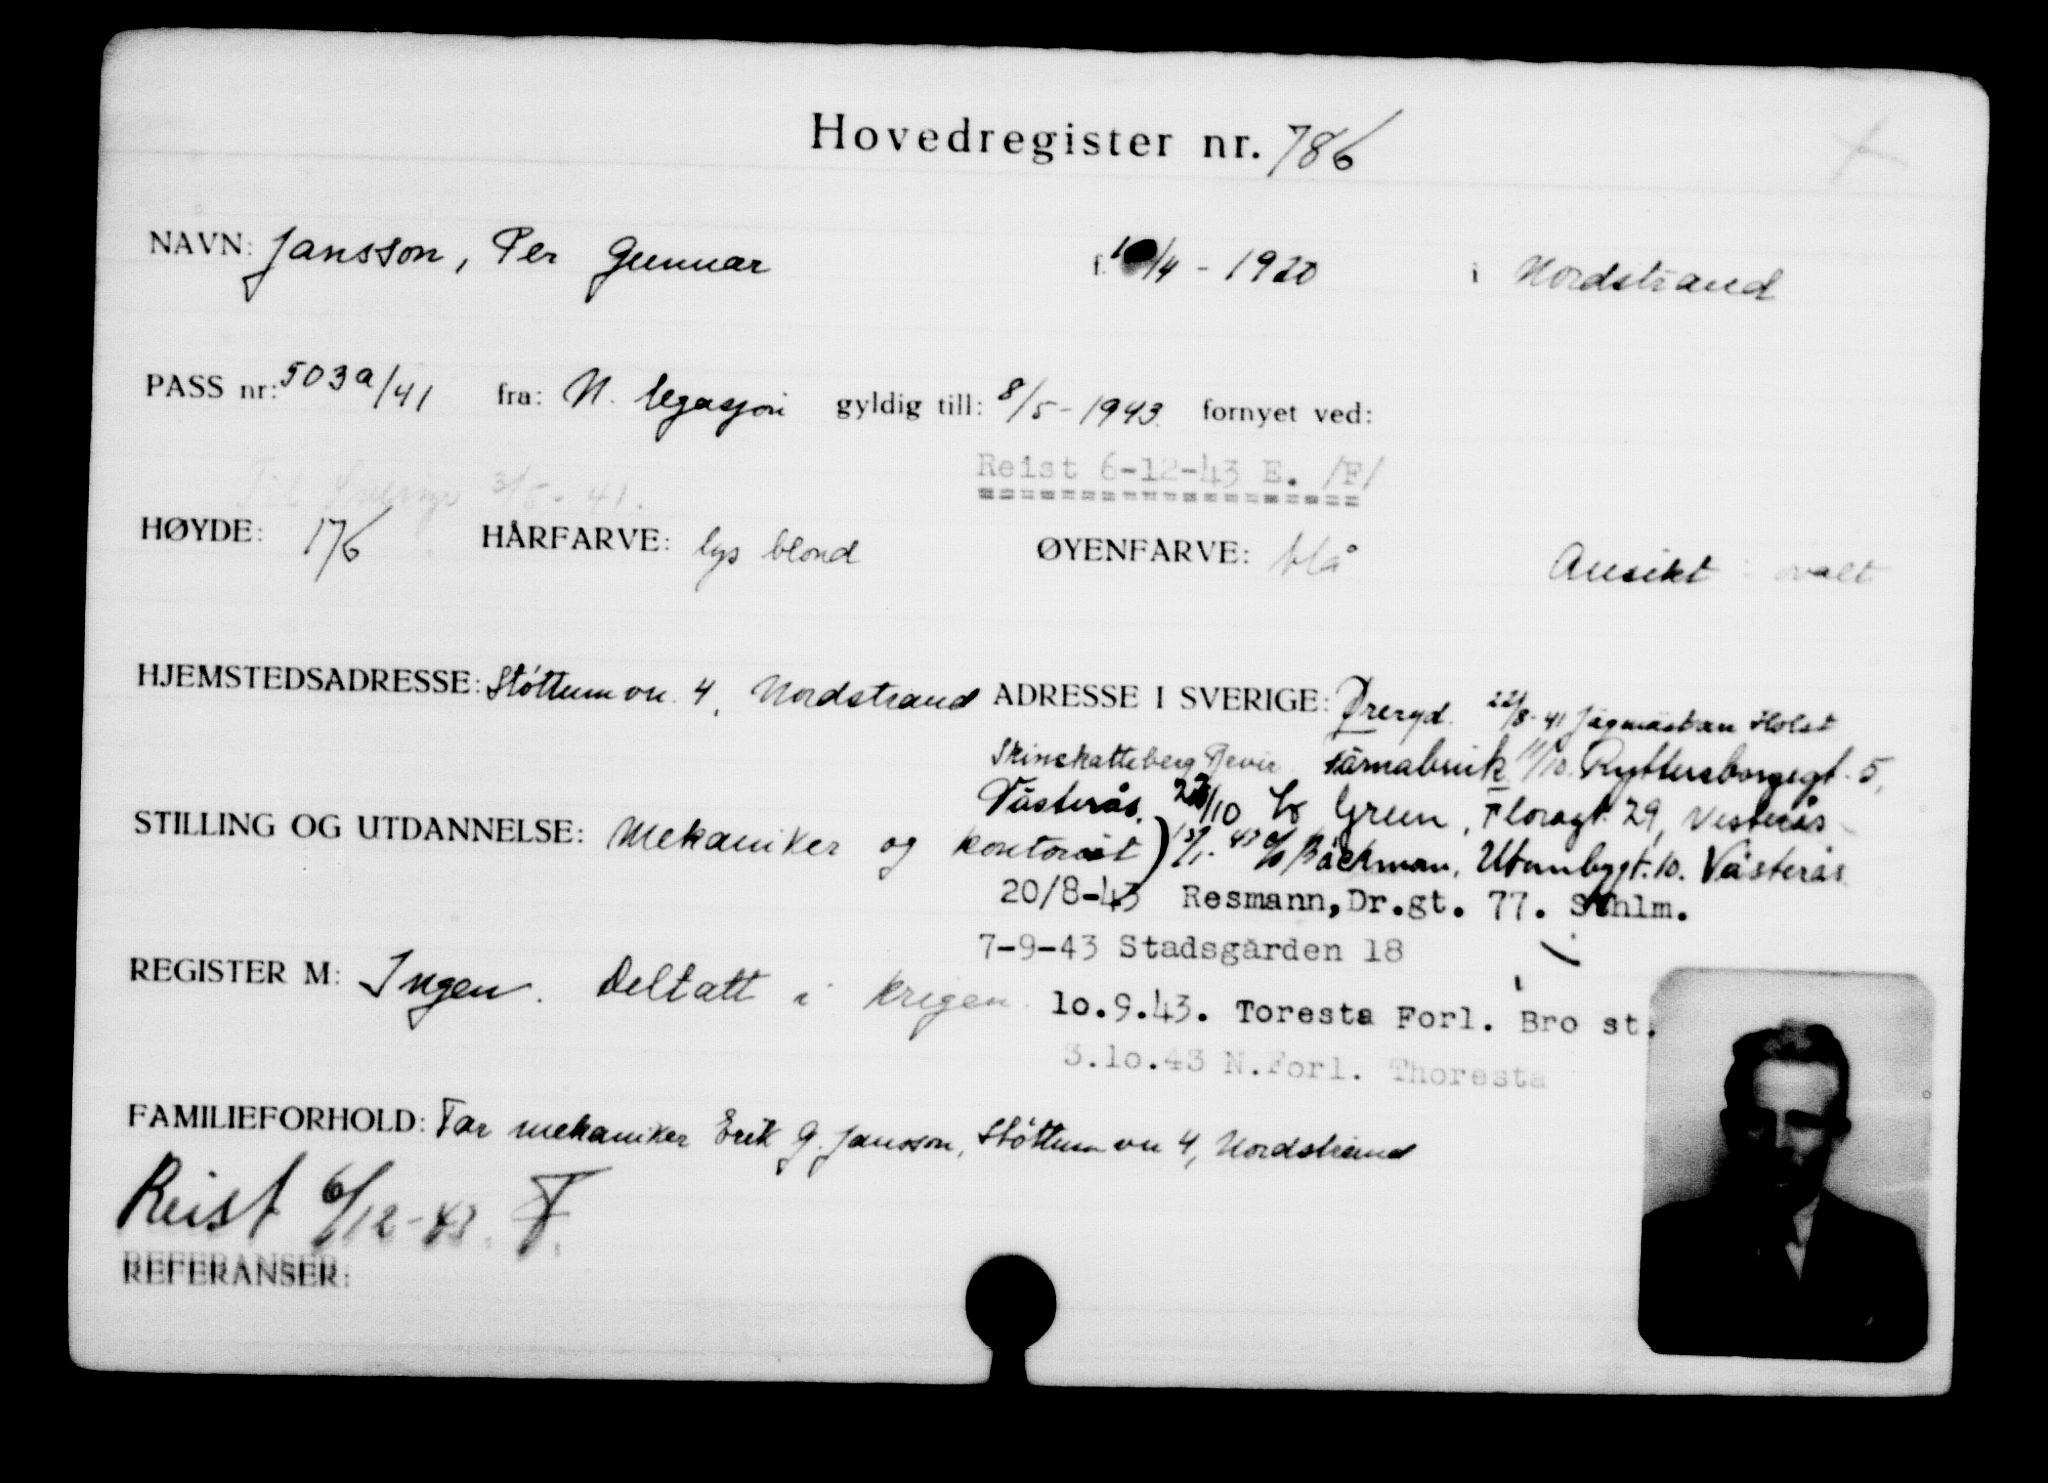 Hovedregister nr. 786
NAVN: Jansson, Per Gunnar f. /4 - 1920 i Nordstrand
PASS nr: 5039/41 fra: N. legasjon gyldig till: 8/5-1943. fornyet ved:
Til Sverige 3/5-41.
Reist 6-12-43 E. /F/
HØYDE: 176 HÅRFARVE: lys blond ØYENFARVE: blå Ansikt: ovalt
HJEMSTEDSADRESSE: Støttumvn. 4, Nordstrand ADRESSE I SVERIGE: Øreryd. 22/8-41 Jägmästan Holst
Skinskatteberg Revir Färnabruk 11/10. Ryttersborgsgt. 5,
Västerås. /10 Grun, Floragt. 29, Vesterås
STILLING OG UTDANNELSE: Mekaniker og kontorist) 13/1-43 c/o Bäckman, gt. 10. Västerås
20/8-43 Resmann, Dr.gt. 77. Sthlm.
7-9-43 Stadsgården 18
REGISTER M: Ingen. Deltatt i krigen.
10.9.43. Toresta Forl. Bro st.
3.10.43 N.Forl. Thoresta
FAMILIEFORHOLD: Far mekaniker Erik G. Jansson, Støttumvn 4, Nordstrand
Reist 6/12-43. F.
REFERANSER: